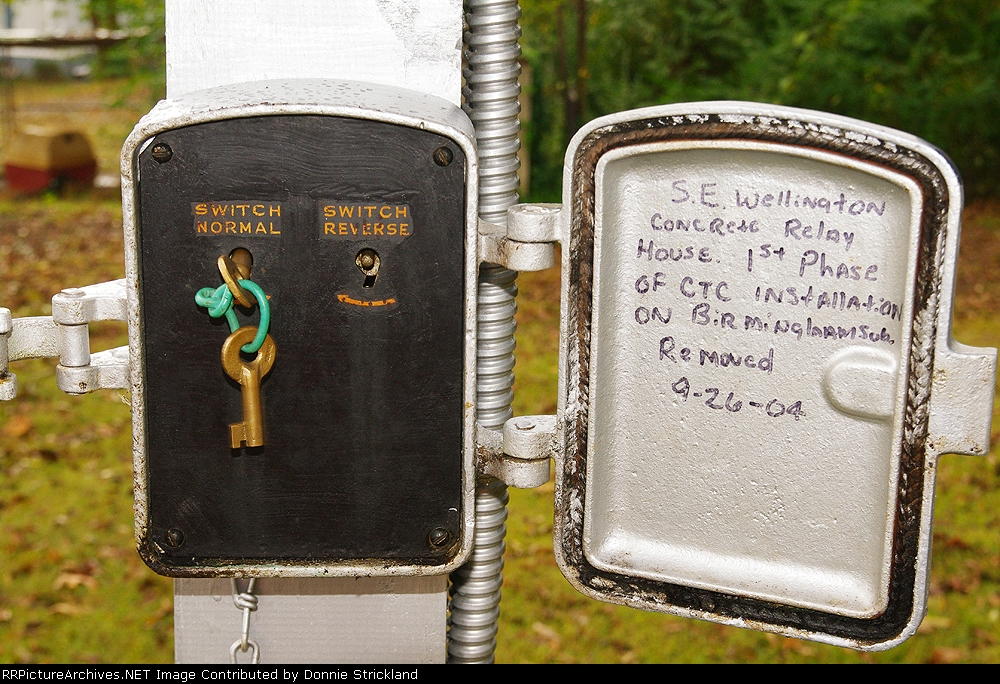 SWITCH
NORMAL
SWITCH
REVERSE
S.E. Wellington
Concrete Relay
House. 1st Phase
OF CTC INStallation
ON BiRMinghamsub.
Removed
9-26-04
RRPictureArchives.NET Image Contributed by Donnie Strickland